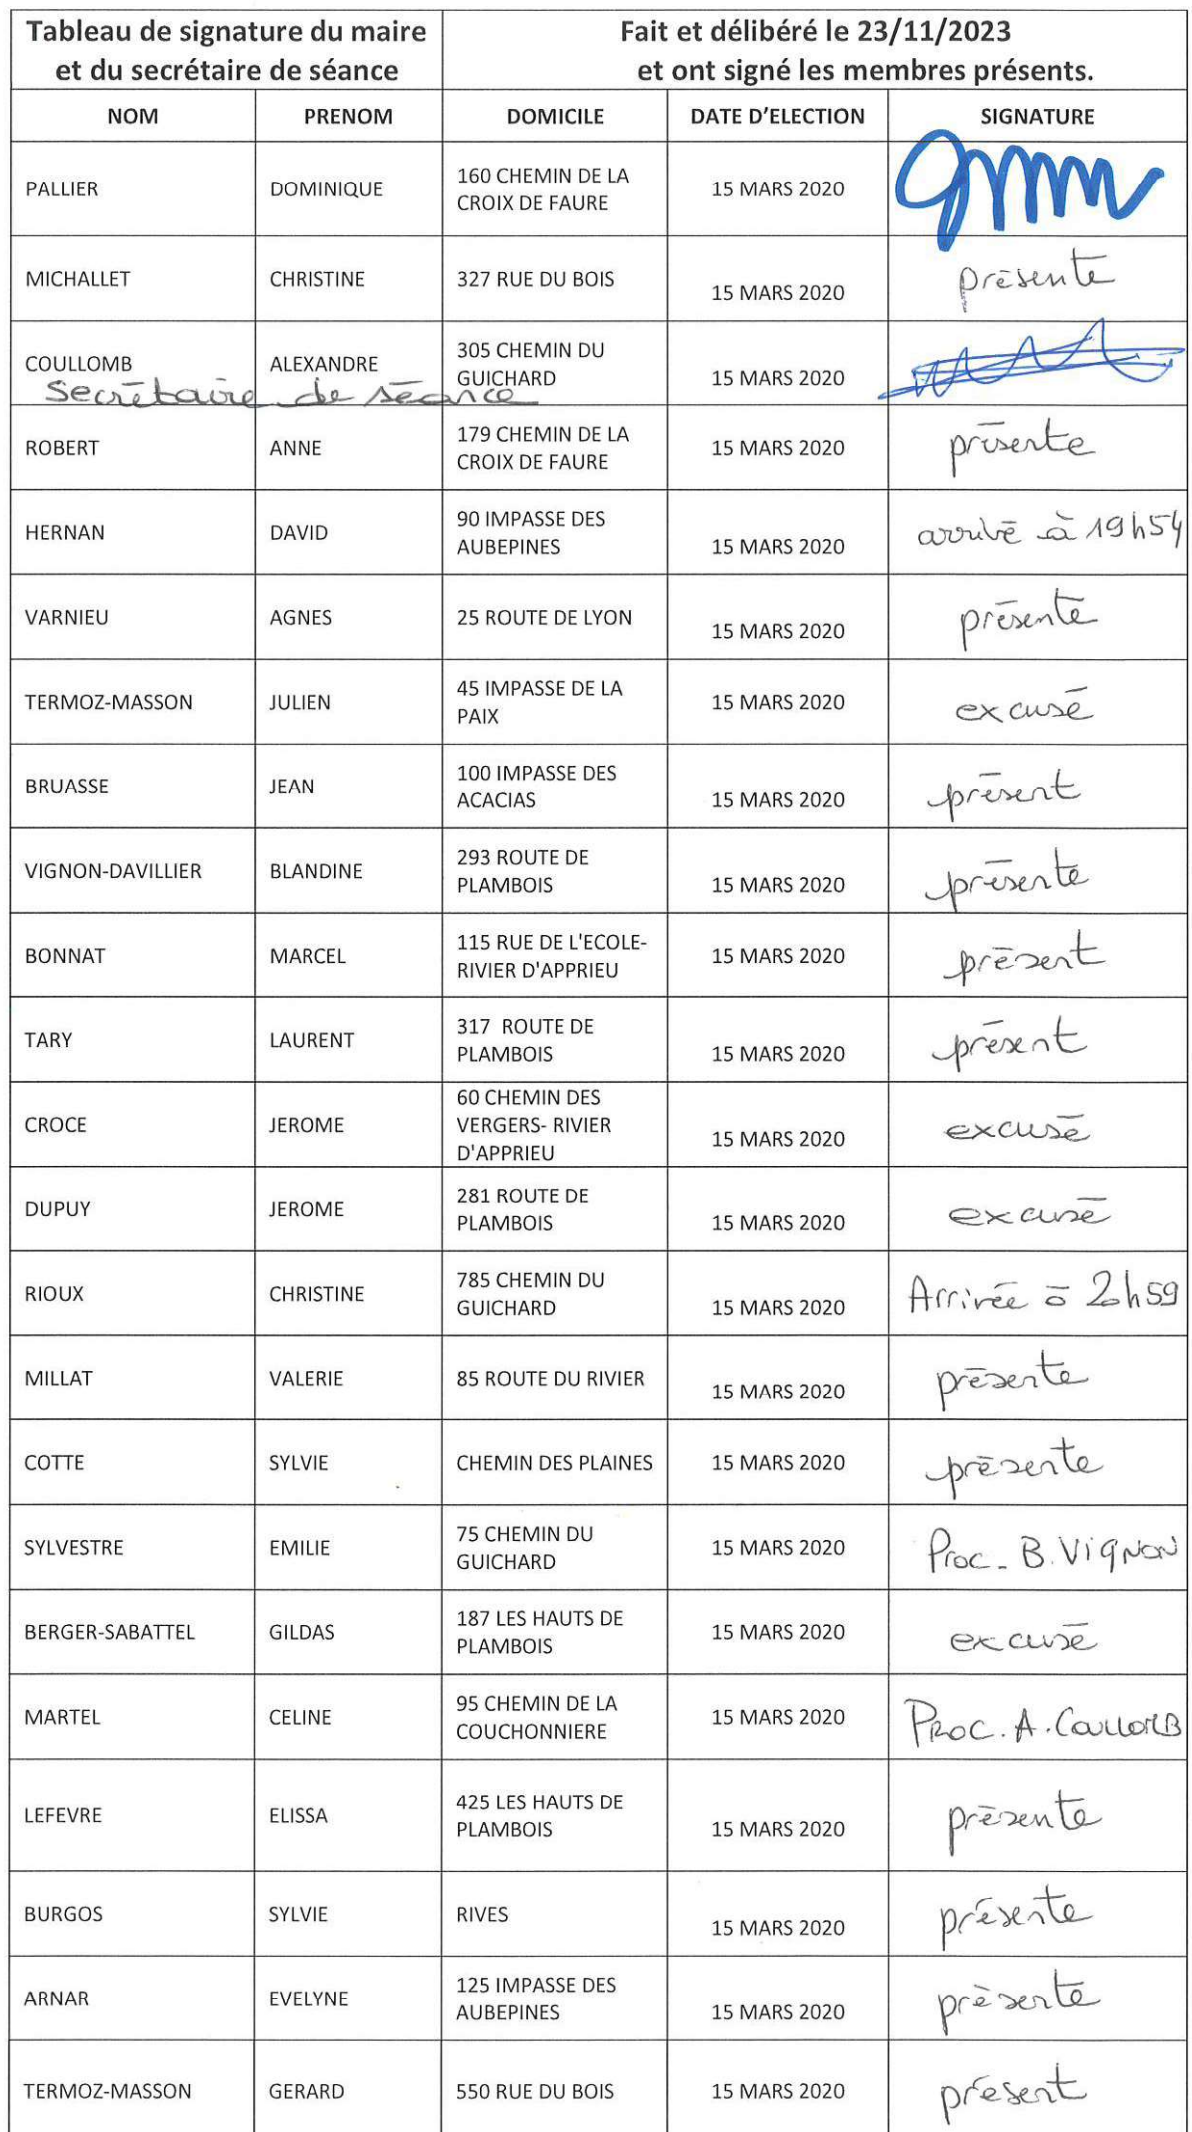 Tableau de signature du maire
et du secrétaire de séance
Fait et délibéré le 23/11/2023
et ont signé les membres présents.
NOM PRENOM DOMICILE DATE D'ELECTION SIGNATURE
PALLIER DOMINIQUE 160 CHEMIN DE LA
CROIX DE FAURE 15 MARS 2020
MICHALLET CHRISTINE 327 RUE DU BOIS 15 MARS 2020 présente
COULLOMB ALEXANDRE 305 CHEMIN DU
GUICHARD 15 MARS 2020
Secrétaire de séance
ROBERT ANNE 179 CHEMIN DE LA
CROIX DE FAURE 15 MARS 2020 présente
HERNAN DAVID 90 IMPASSE DES
AUBEPINES 15 MARS 2020 arrivé à 19h54
VARNIEU AGNES 25 ROUTE DE LYON 15 MARS 2020 présente
TERMOZ-MASSON JULIEN 45 IMPASSE DE LA
PAIX 15 MARS 2020 excusé
BRUASSE JEAN 100 IMPASSE DES
ACACIAS 15 MARS 2020 présent
VIGNON-DAVILLIER BLANDINE 293 ROUTE DE
PLAMBOIS 15 MARS 2020 présente
BONNAT MARCEL 115 RUE DE L'ECOLE-
RIVIER D'APPRIEU 15 MARS 2020 présent
TARY LAURENT 317 ROUTE DE
PLAMBOIS 15 MARS 2020 présent
CROCE JEROME 60 CHEMIN DES
VERGERS- RIVIER
D'APPRIEU 15 MARS 2020 excusé
DUPUY JEROME 281 ROUTE DE
PLAMBOIS 15 MARS 2020 excusé
RIOUX CHRISTINE 785 CHEMIN DU
GUICHARD 15 MARS 2020 Arrivée à 20h59
MILLAT VALERIE 85 ROUTE DU RIVIER 15 MARS 2020 présente
COTTE SYLVIE CHEMIN DES PLAINES 15 MARS 2020 présente
SYLVESTRE EMILIE 75 CHEMIN DU
GUICHARD 15 MARS 2020 Proc. B. VigNoN
BERGER-SABATTEL GILDAS 187 LES HAUTS DE
PLAMBOIS 15 MARS 2020 excusé
MARTEL CELINE 95 CHEMIN DE LA
COUCHONNIERE 15 MARS 2020 PROC. A. COULLOMB
LEFEVRE ELISSA 425 LES HAUTS DE
PLAMBOIS 15 MARS 2020 présente
BURGOS SYLVIE RIVES 15 MARS 2020 présente
ARNAR EVELYNE 125 IMPASSE DES
AUBEPINES 15 MARS 2020 présente
TERMOZ-MASSON GERARD 550 RUE DU BOIS 15 MARS 2020 présent